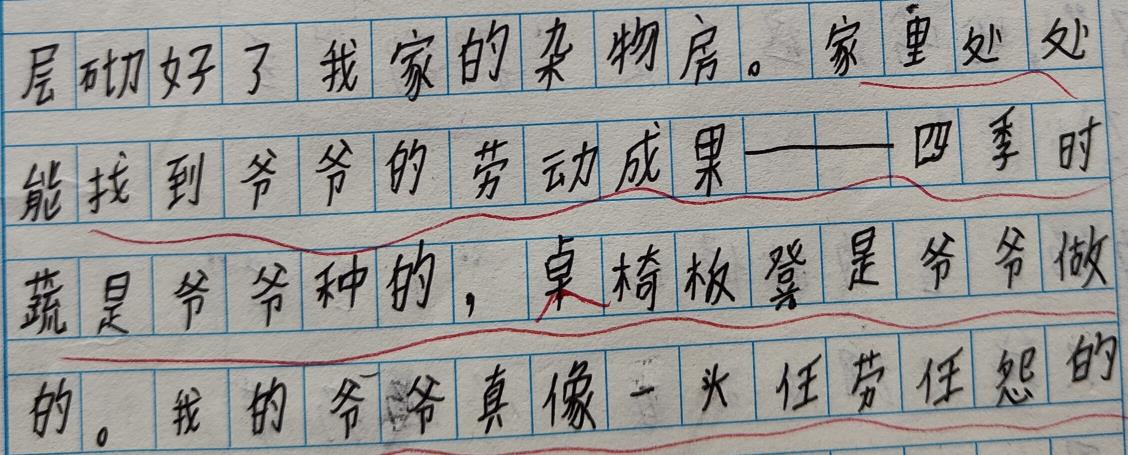 层砌好了我家的杂物房。家里处处
能找到爷爷的劳动成果——四季时
蔬是爷爷种的，桌椅板登是爷爷做
的。我的爷爷真像一头任劳任怨的